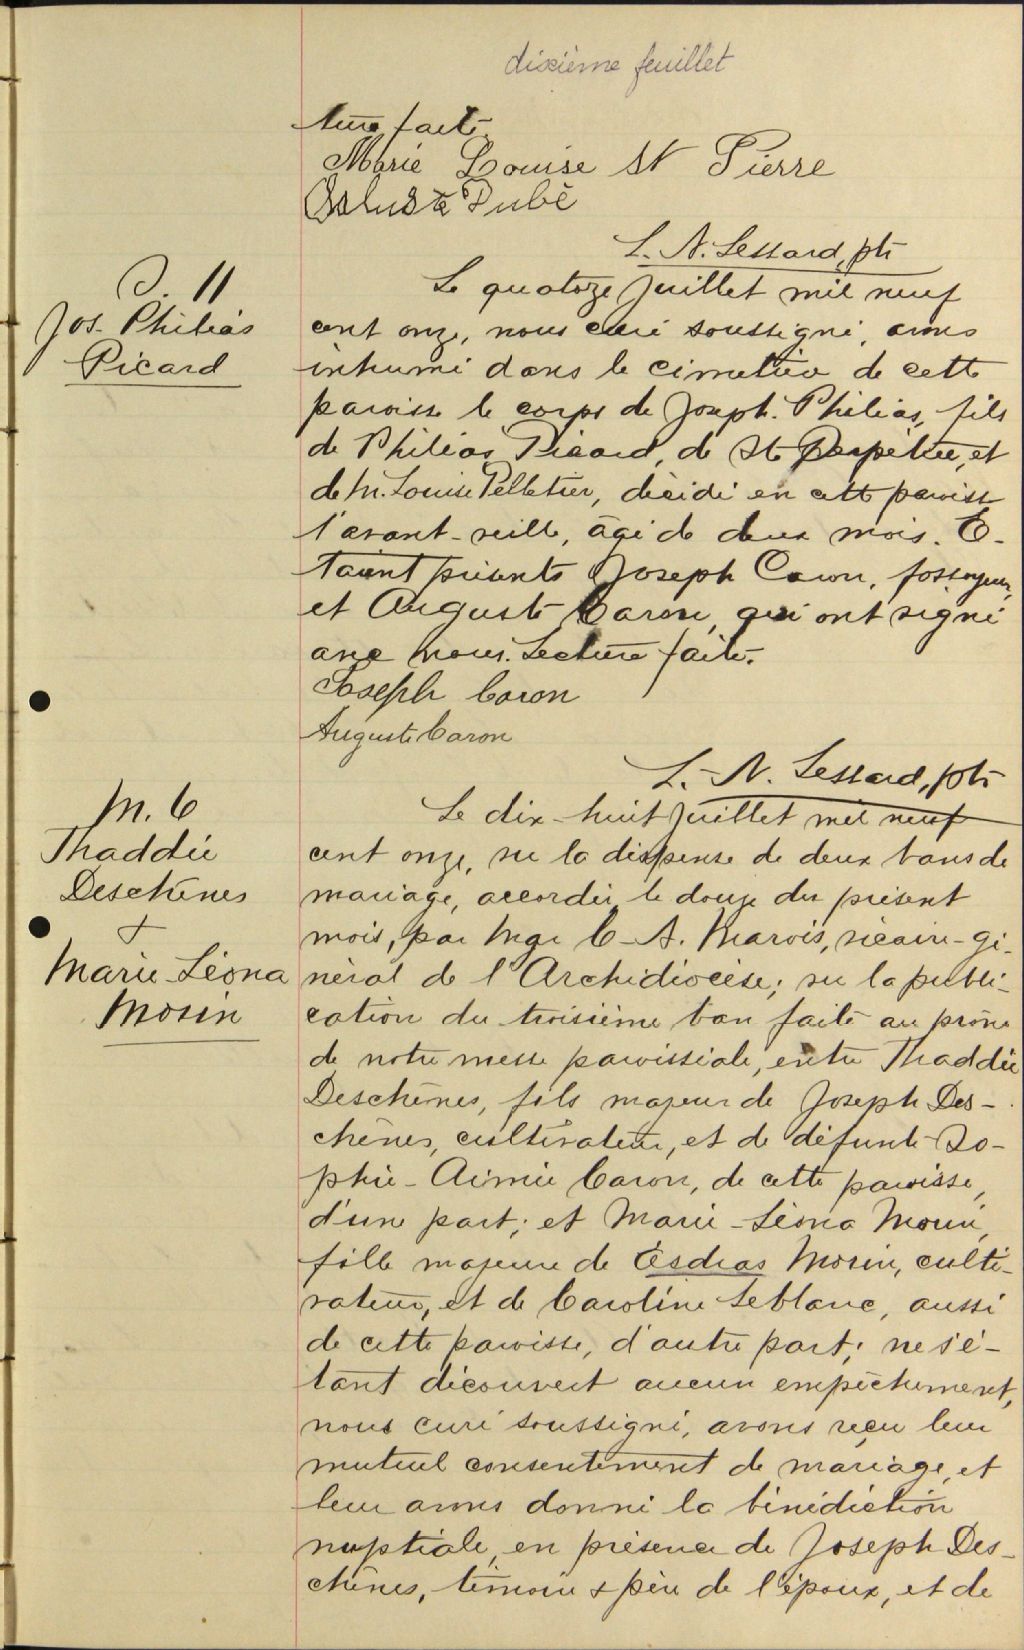 dixième feuillet
ture faite.
Marie Louise St Pierre
Dubé
L. N. Lessard, ptr
S. 11
Jos. Philias
Picard
Le quatorze juillet mil neuf
cent onze, nous curé soussigné, avons
inhumé dans le cimetière de cette
paroisse le corps de Joseph Philias, fils
de Philias Picard, de Ste Perpétue, et
de M. Louise Pelletier, décédé en cette paroisse
l'avant-veille, âgé de deux mois. É-
taient présents Joseph Caron, fossoyeur,
et Auguste Caron, qui ont signé
avec nous. Lecture faite.
Joseph Caron
Auguste Caron
L. N. Lessard, ptr
M. 6
Thaddée
Deschênes
+
Marie-Léona
Morin
Le dix-huit juillet mil neuf
cent onze, vu la dispense de deux bans de
mariage, accordée le douze du présent
mois, par Mgr C-A. Marois, vicaire-gé-
néral de l'Archidiocèse; vu la publi-
cation du troisième ban faite au prône
de notre messe paroissiale, entre Thaddée
Deschênes, fils majeur de Joseph Des-
chênes, cultivateur, et de défunte So-
phie-Aimée Caron, de cette paroisse,
d'une part; et Marie-Léona Morin,
fille majeure de Esdras Morin, culti-
vateur, et de Caroline Leblanc, aussi
de cette paroisse, d'autre part; ne s'é-
tant découvert aucun empêchement,
nous curé soussigné, avons reçu leur
mutuel consentement de mariage, et
leur avons donné la bénédiction
nuptiale, en présence de Joseph Des-
chênes, témoin & père de l'époux, et de